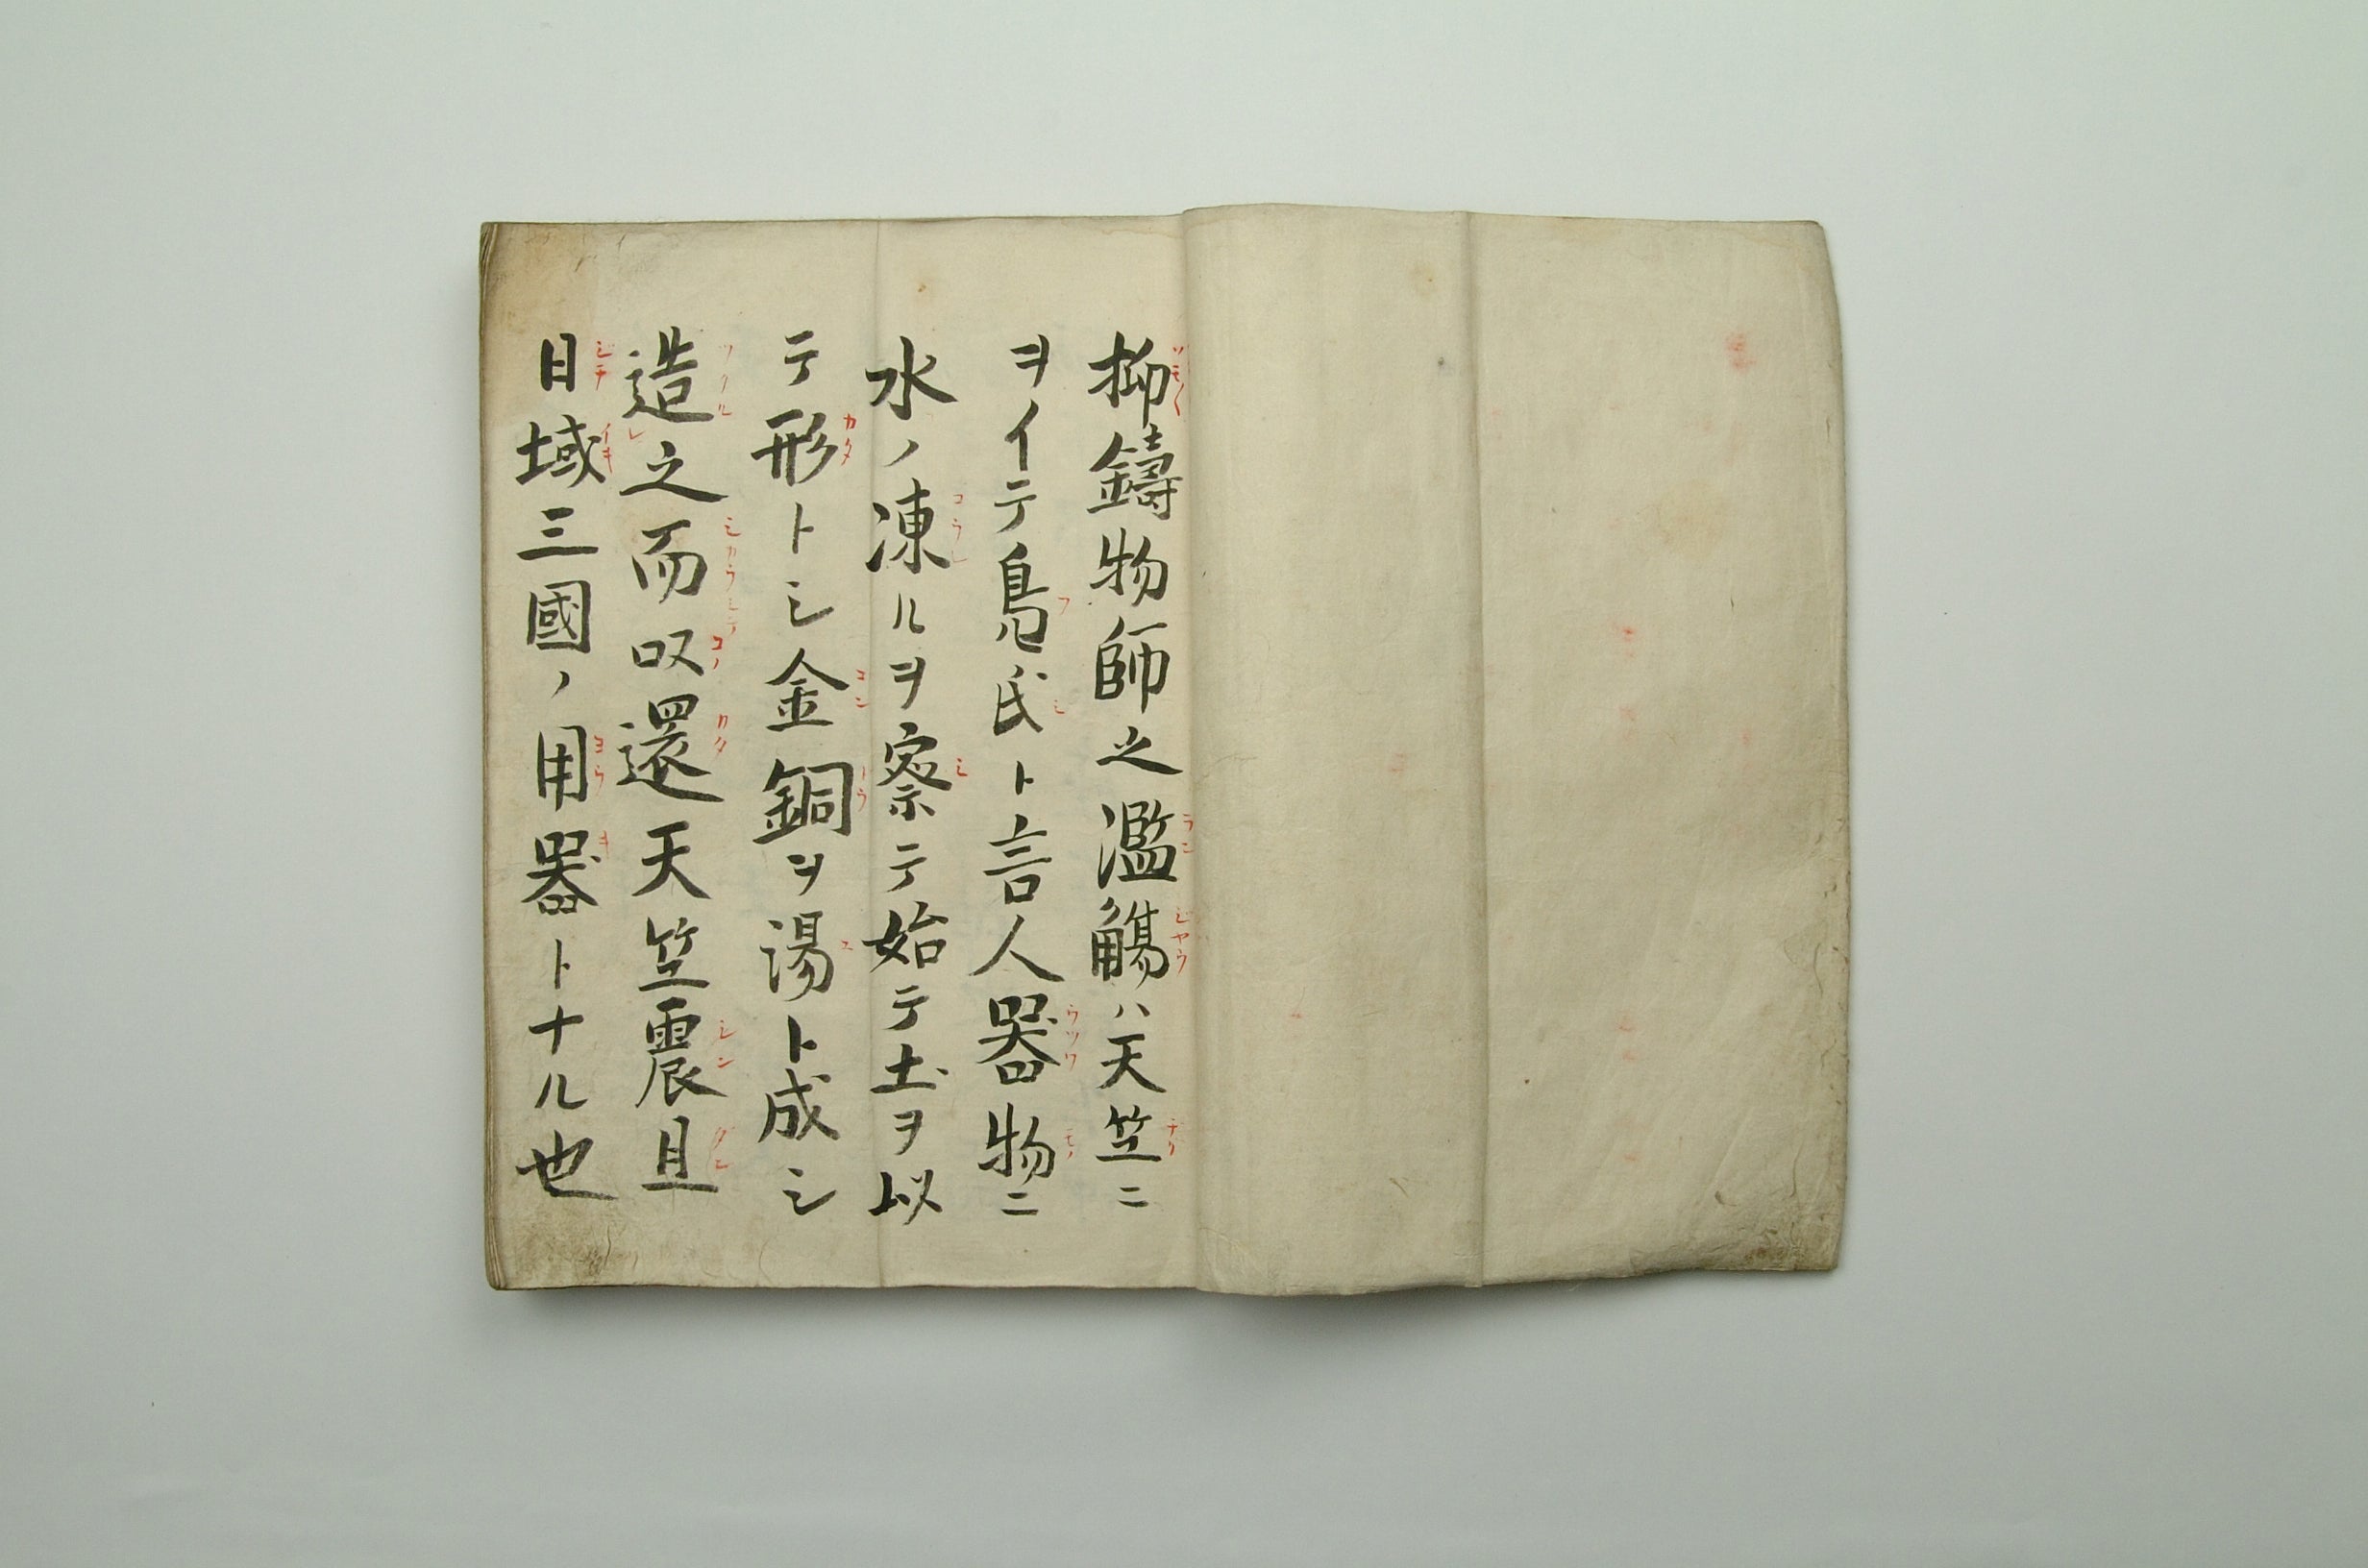 抑鑄物師之濫觴ハ天竺ニ
ヲイテ鳧氏ト言人器物ニ
水ノ凍ルヲ察テ始テ土ヲ以
テ形トシ金銅ヲ湯ト成シ
造之而収還天竺震旦
日域三國ノ用器トナル也